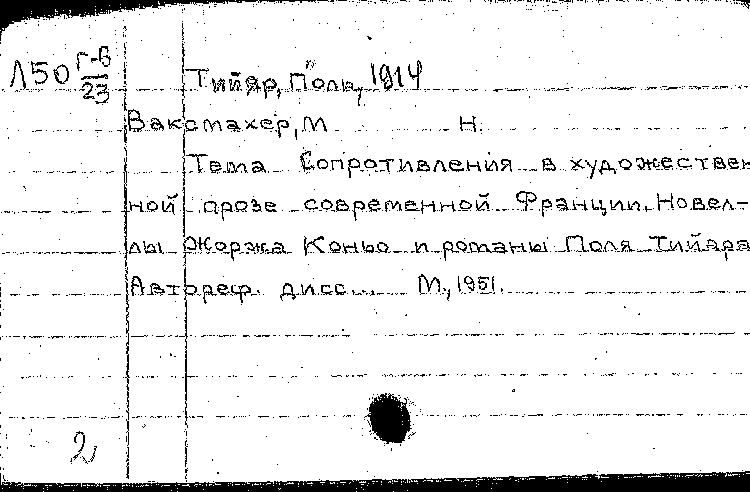 Л50 Г-В
23
Тийяр, Поль, 1914
Ваксмахер, М. Н.
Тема Сопротивления в художествен
ной прозе современной Франции. Новел-
лы Жоржа Коньо и романы Поля Тийяра
Автореф. дисс... М., 1951.
2